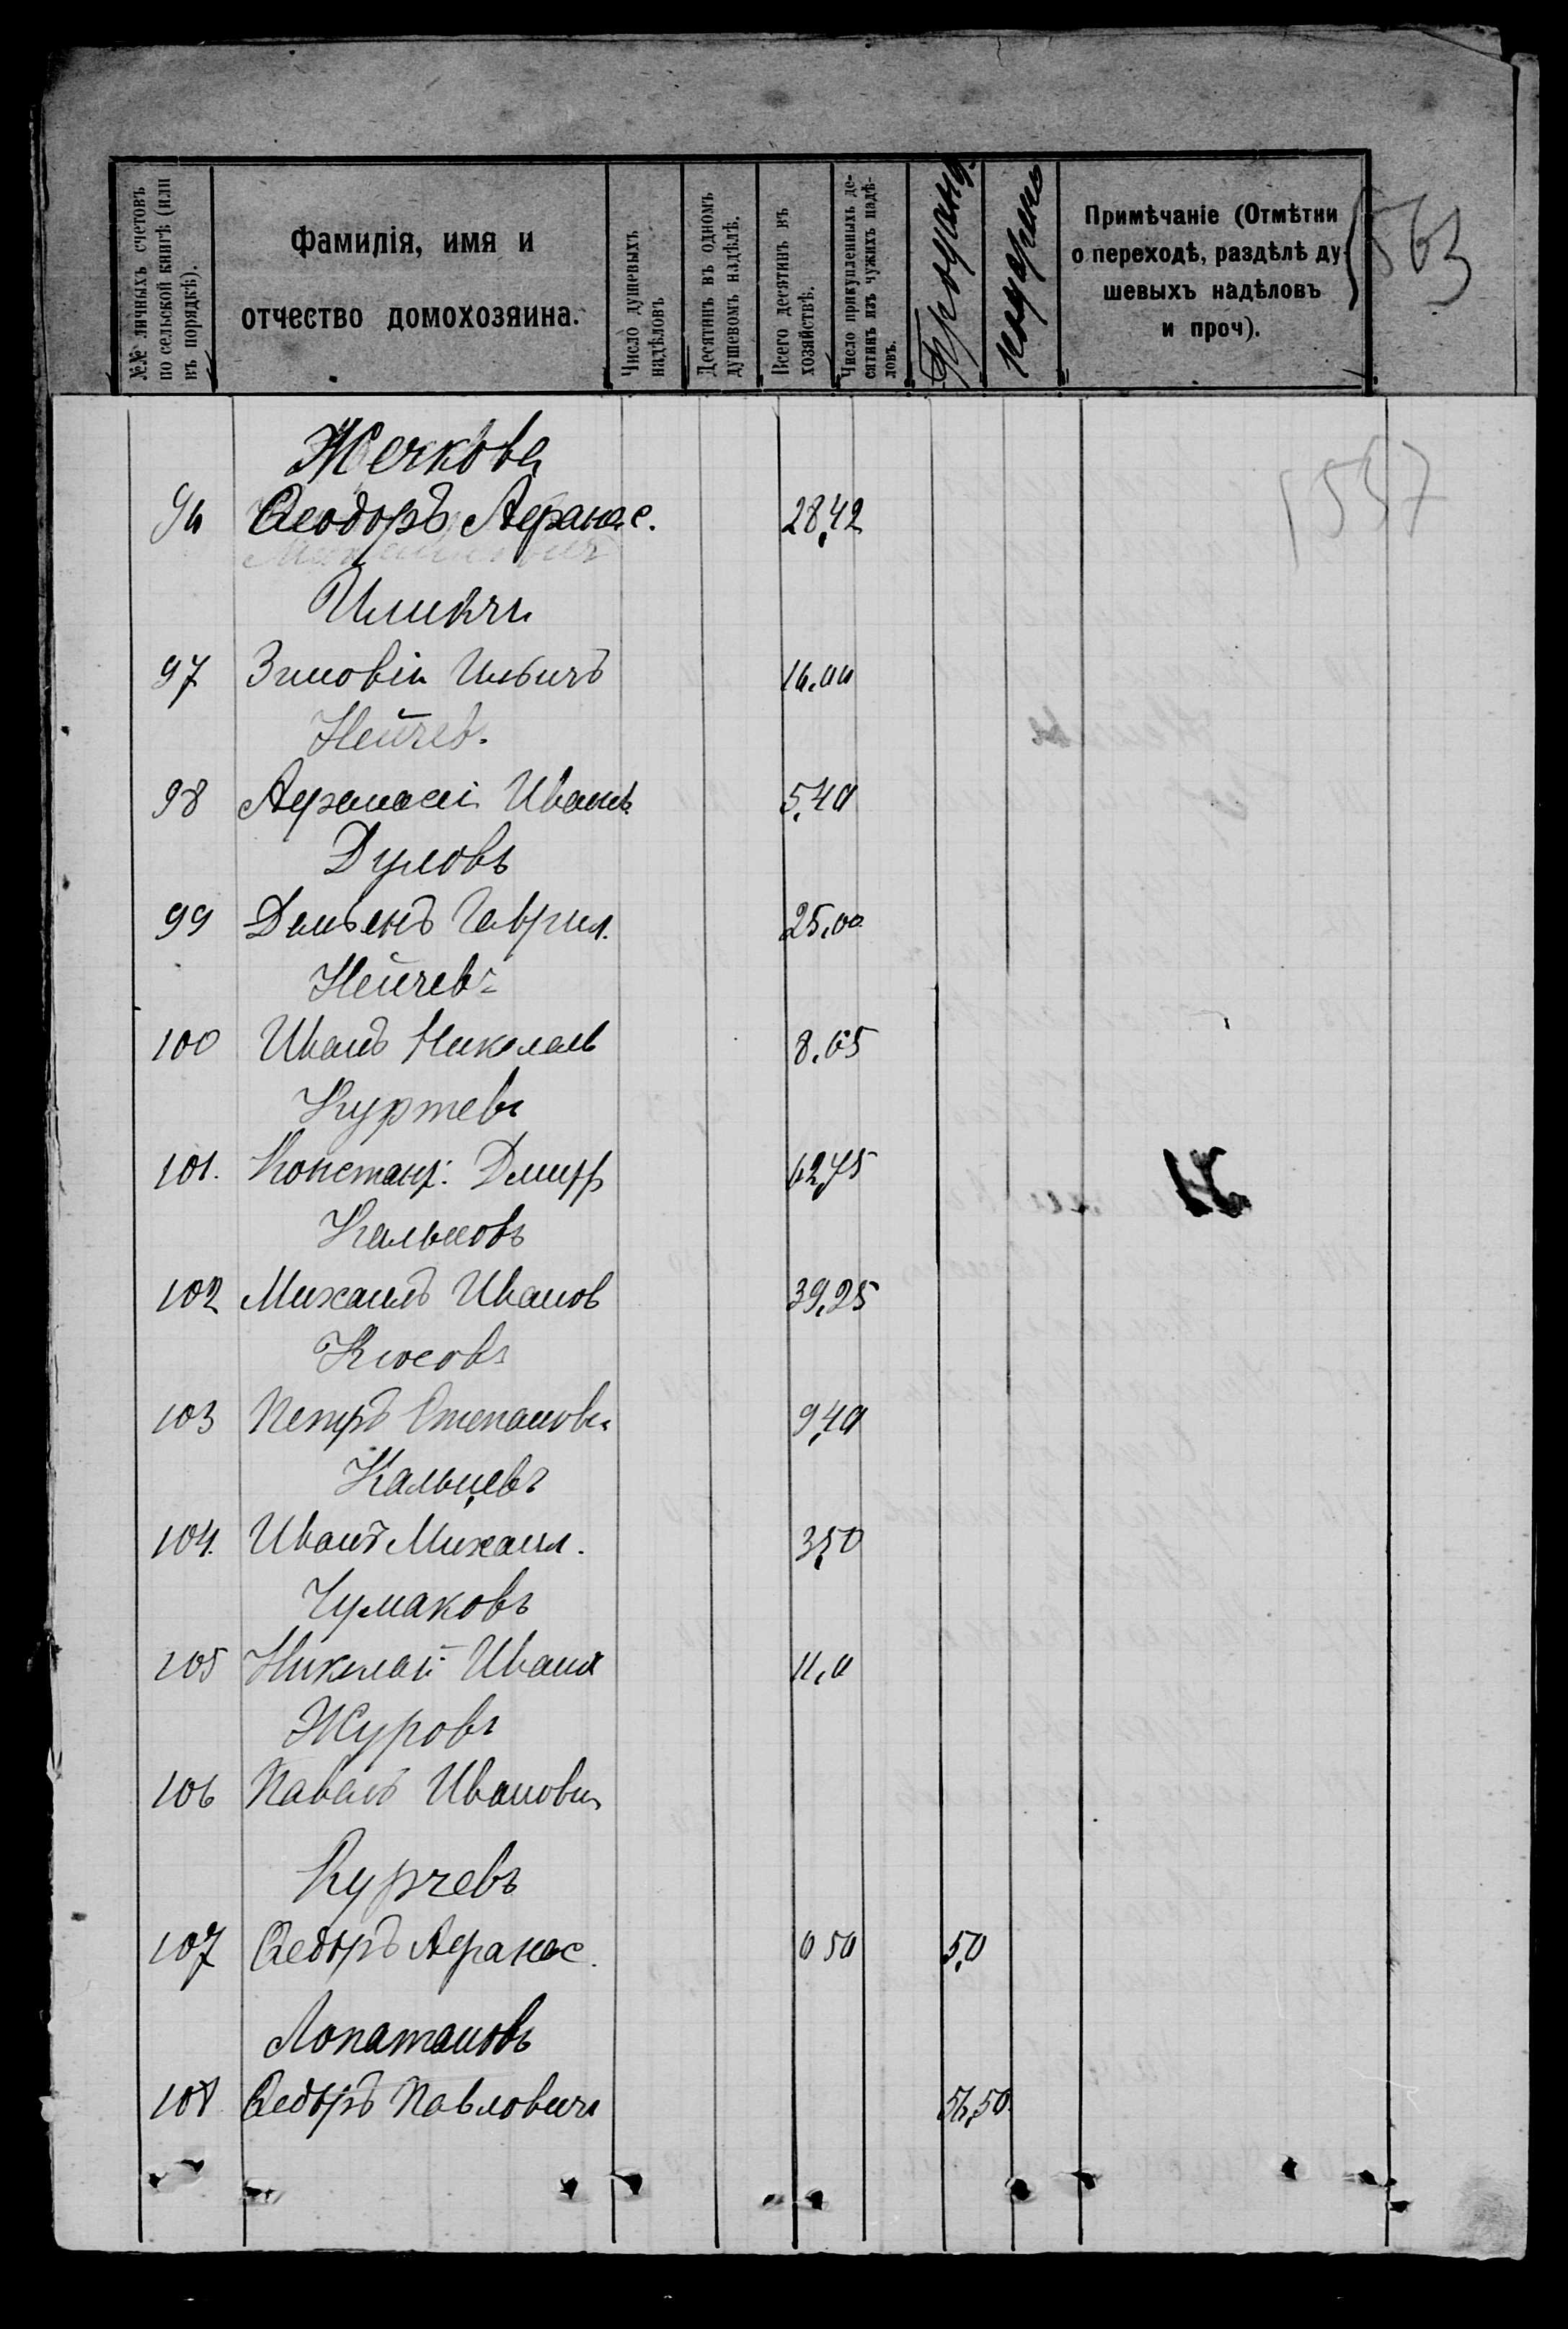 №№ личныхъ счетовъ по сельской книгѣ (или въ порядкѣ).
Фамилія, имя и отчество домохозяина.
Число душевыхъ надѣловъ
Десятинъ въ одномъ душевомъ надѣлѣ.
Всего десятинъ въ хозяйствѣ.
Число прикупленныхъ десятинъ изъ чужихъ надѣловъ.
Примѣчаніе (Отмѣтки о переходѣ, раздѣлѣ душевыхъ надѣловъ и проч).
563
557
Жечковъ
Ѳеодоръ Афанас. 28,42
97 Зиновій Ильичъ 16.00
Нейчев.
98 Афанасій Иванъ 5,40
Дуловъ
99 Демьенъ Гаврил. 25,00
Нейчевъ
100 Иванъ Николаев 8.65
Куртевъ
101. Констант: Дмитр 62,75
Кальковъ
102 Михаилъ Иванов 39,25
Кюсовъ
103 Петръ Степанови 9,40
Кальчевъ
104. Иванъ Михаил. 3,50
Чумаковъ
105 Николай Иван 11,0
Журовъ
106 Павелъ Иванови
Курчевъ
107 Ѳедоръ Афанас. 0 50 5,0
Лопатановъ
108 Ѳедоръ Павловичъ 56,50